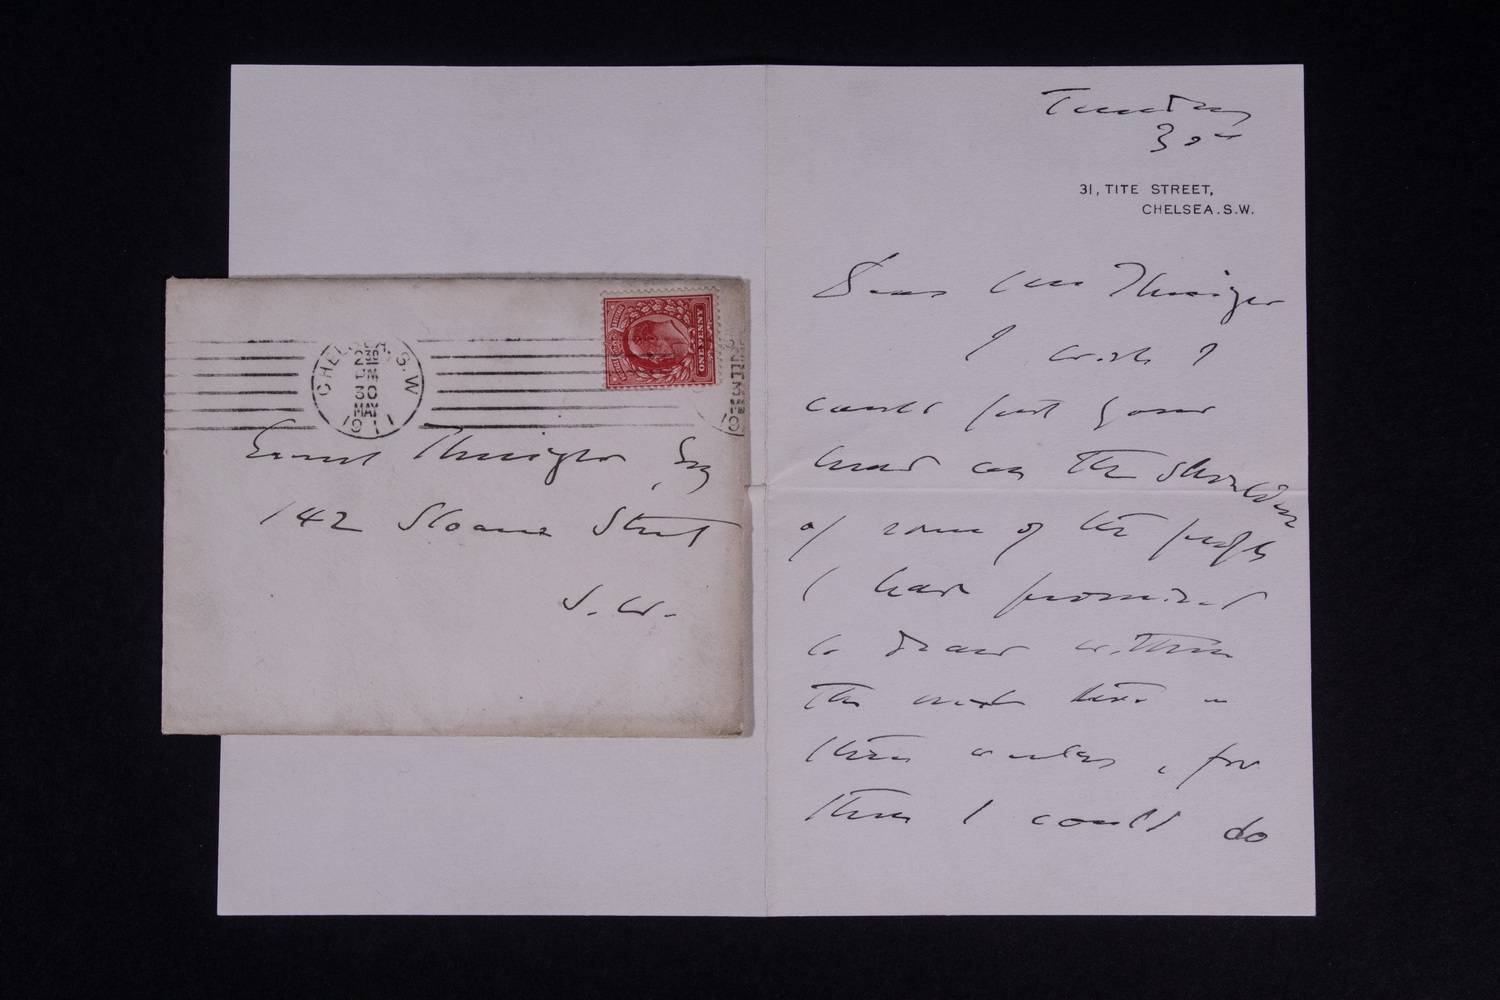 Tuesday
30th
31, TITE STREET,
CHELSEA. S.W.
Dear Mr Thesiger
I wish I
could put your
head on the shoulders
of some of the people
I have promised
to draw within
the next two or
three weeks, for
then I could do
ONE PENNY
CHELSEA. S.W
PM
30
MAY
1911
Ernest Thesiger, Esq
142 Sloane Street
S. W.